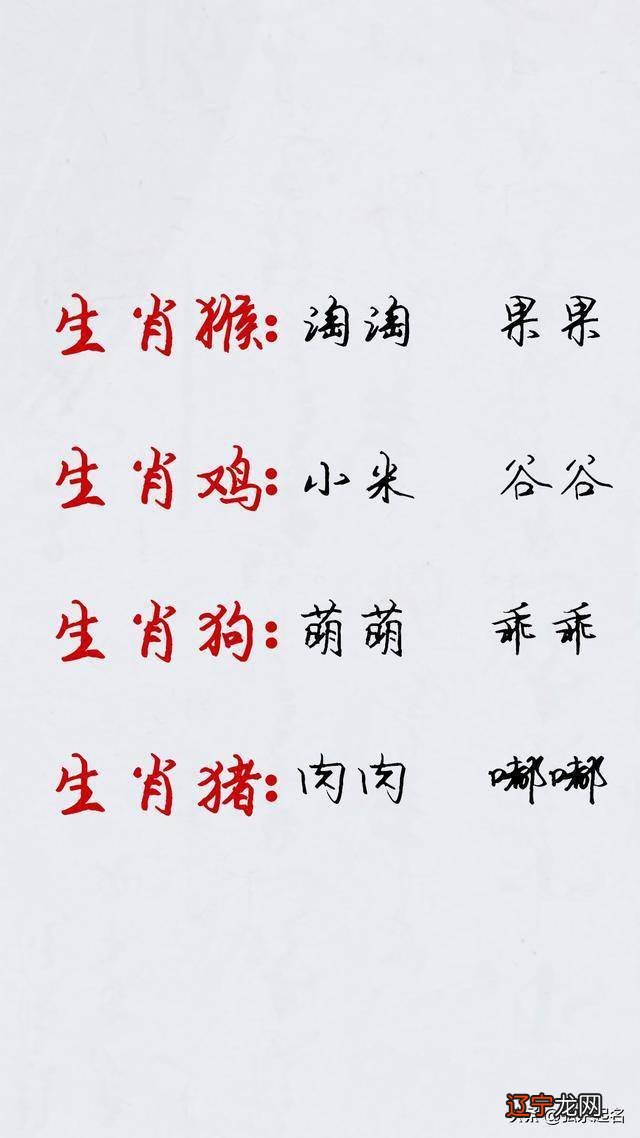 生肖猴：淘淘 果果
生肖鸡：小米 谷谷
生肖狗：萌萌 乖乖
生肖猪：肉肉 嘟嘟
辽宁龙网
起名